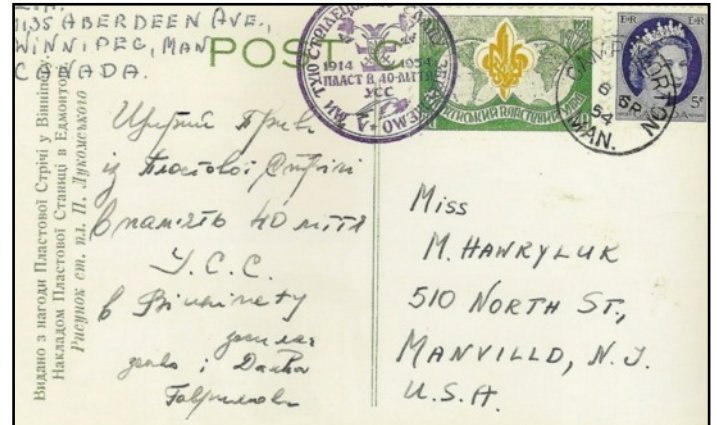 1135 ABERDEEN AVE.,
WINNIPEG, MAN
CANADA.
POST C
А МИ ТУЮ СТРІЛЕЦЬКУЮ СЛАВУ ЗБЕРЕЖЕМО
1914 1954
ПЛАСТ В 40-ЛІТТЯ
УСС
ПЛАСТОВИЙ
CAMP
6
SP
54
MAN.
E R E R
5¢
CANADA
Видано з нагоди Пластової Стрічі у Вінніпегу.
Накладом Пластової Станиці в Едмонтоні.
Рисунок ст. пл. П. Лукомського
Щирий Приві
із Пластової Стрічі
в память 40 ліття
У.С.С.
в Вінніпегу
і Данка
Miss
M. HAWRYLUK
510 NORTH ST.,
MANVILLD, N.J.
U.S.A.